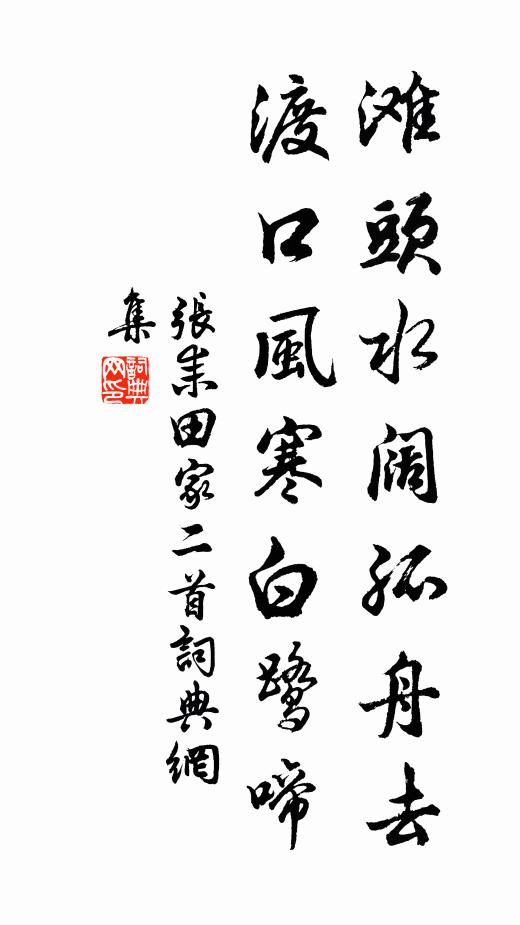 滩頭水阔孤舟去
渡口風寒白鷺啼
張耒田家二首詞典網
集
詞典網印